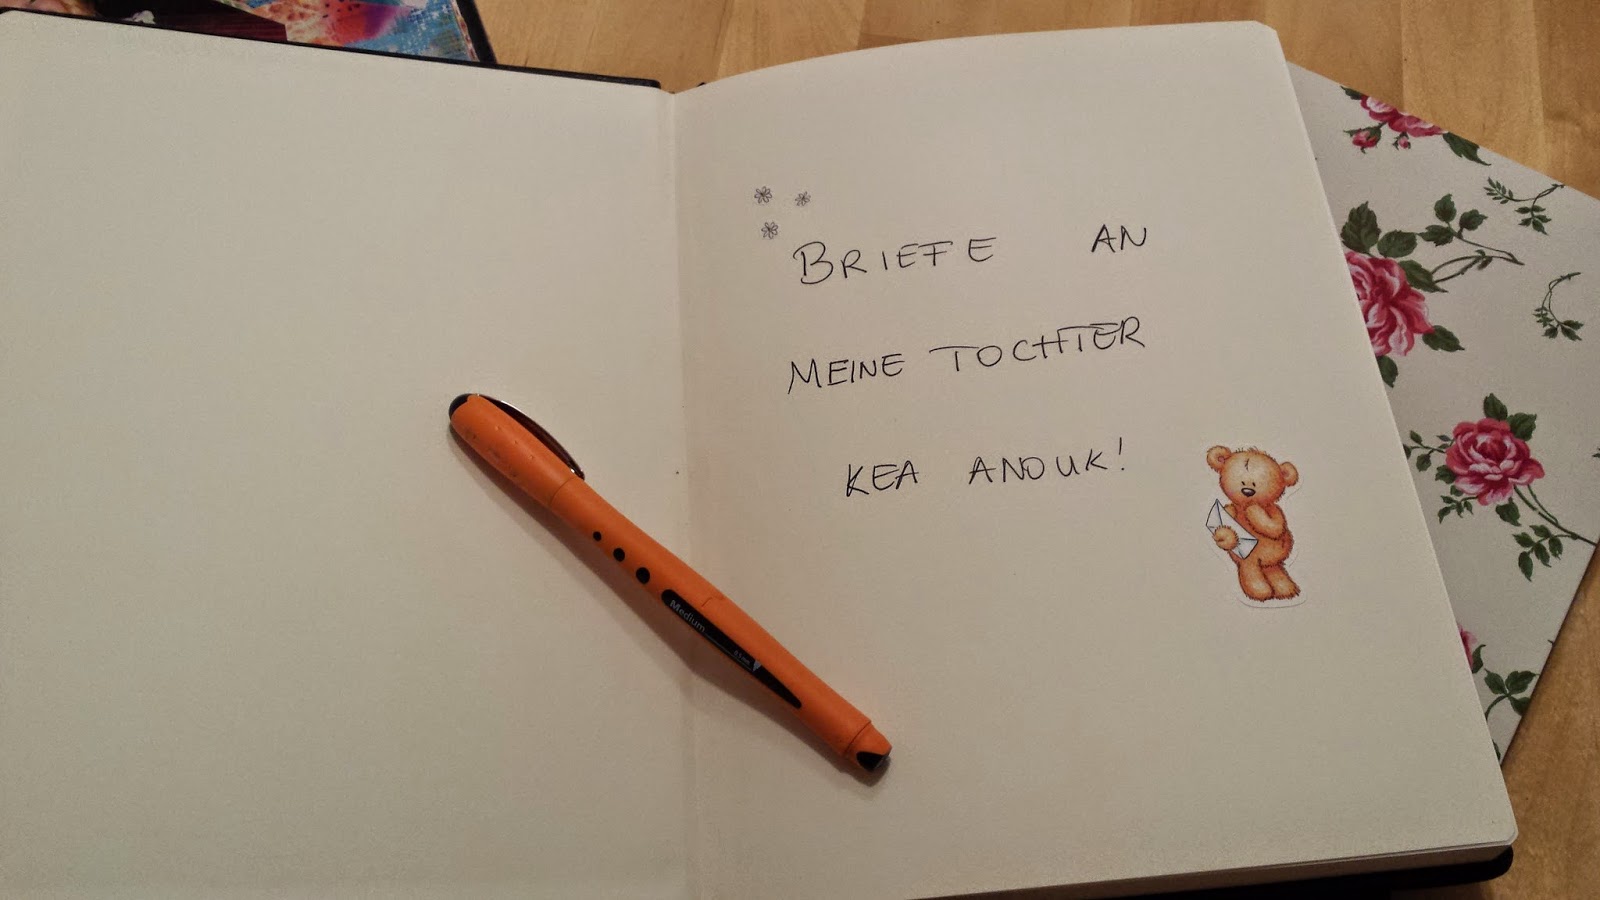 BRIEFE AN
MEINE TOCHTER
KEA ANOUK!
Medium